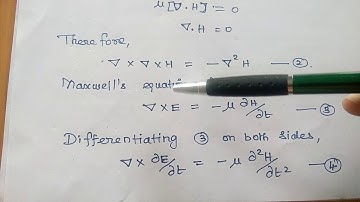 μ[∇.H] = 0
∇.H = 0
Therefore,
∇ × ∇ × H = -∇²H — ②.
Maxwell's equati
∇ × E = -μ ∂H/∂t — ③
Differentiating ③ on both sides,
∇ × ∂E/∂t = -μ ∂²H/∂t² — ④